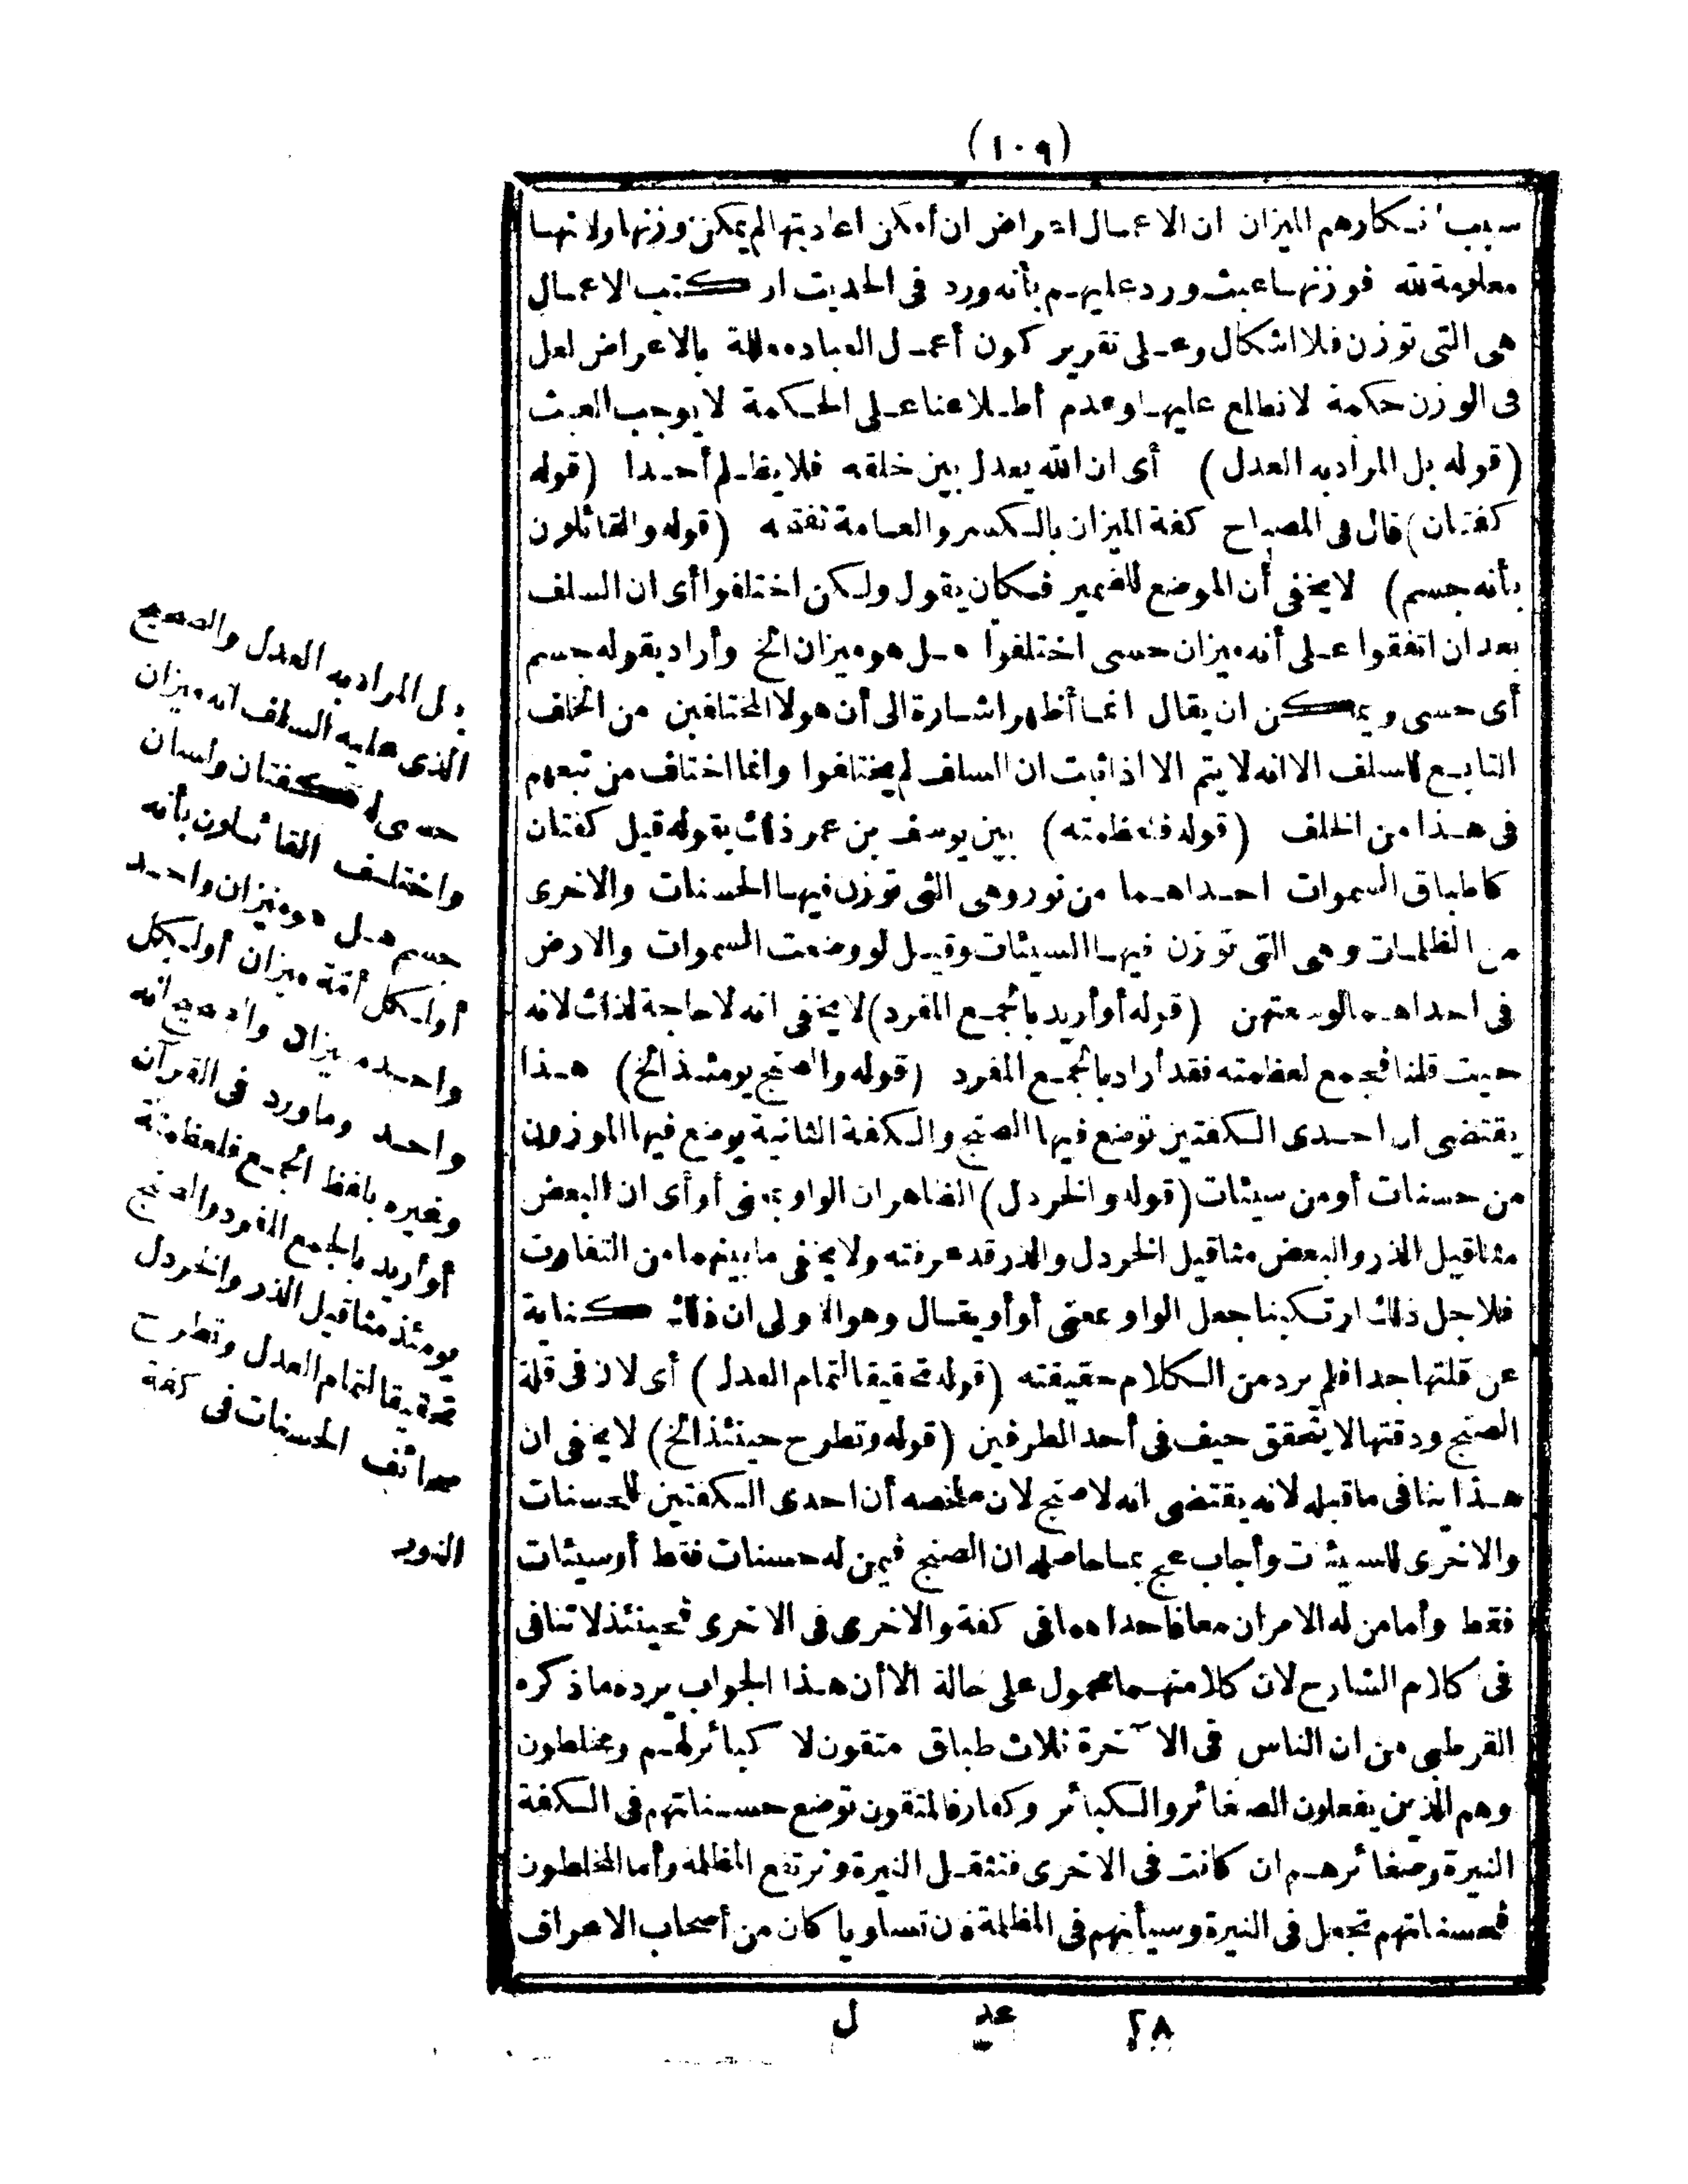 (١٠٩)
سبب انكارهم الميزان ان الاعمال اعراض ان أمكن اعادتها لم يمكن وزنها ولانها
معلومة لله فوزنها عبث ورد عليهم بأنه ورد فى الحديث ان كتب الاعمال
هى التى توزن فلا اشكال وعلى تقرير كون أعمال العباد معللة بالاعراض لعل
فى الوزن حكمة لا نطلع عليها وعدم أطلاعنا على الحكمة لا يوجب العبث
(قوله بل المراد به العدل) أى ان الله يعدل بين خلقه فلا يظلم أحدا (قوله
كفتان) قال فى المصباح كفة الميزان بالكسر والعامة تفتحه (قوله والقائلون
بأنه جسم) لا يخفى أن الموضع للضمير فكان يقول ولكن اختلفوا أى ان السلف
بعد ان اتفقوا على أنه ميزان حسى اختلفوا هل هو ميزان الخ وأراد بقوله جسم
أى حسى ويمكن ان يقال انما أظهر اشارة الى أن هولا المختلفين من الخلف
التابع للسلف الا انه لا يتم الا اذا ثبت ان السلف لم يختلفوا وانما اختلف من تبعهم
فى هذا من الخلف (قوله فلعظمته) بين يوسف بن عمر ذلك بقوله قيل كفتان
كاطباق السموات احداهما من نور وهى التى توزن فيها الحسنات والاخرى
من الظلمات وهى التى توزن فيها السيئات وقيل لو وضعت السموات والارض
فى احداهما لوسعتهن (قوله أو أريد بالجمع المفرد) لا يخفى انه لا حاجة لذلك لانه
حيث قلنا فجمع لعظمته فقد أراد بالجمع المفرد (قوله والصنج يومئذ الخ) هذا
يقتضى ان احدى الكفتين توضع فيها الصنج والكفة الثانية يوضع فيها الموزون
من حسنات أو من سيئات (قوله والخردل) الظاهر ان الواو بمعنى أو أى ان البعض
مثاقيل الذر والبعض مثاقيل الخردل والذر قد عرفته ولا يخفى ما بينهما من التفاوت
فلاجل ذلك ارتكبنا جعل الواو بمعنى أو أو يقال وهو الاولى ان ذلك كناية
عن قلتها جدا فلم يرد من الكلام حقيقته (قوله تحقيقا لتمام العدل) أى لان فى قلة
الصنج ودقتها لا يتحقق حيف فى أحد الطرفين (قوله وتطرح حينئذ الخ) لا يخفى ان
هذا ينافى ما قبله لانه يقتضى انه لا صنج لان ملخصه أن احدى الكفتين للحسنات
والاخرى للسيئات وأجاب عج بما حاصله ان الصنج فيمن له حسنات فقط أو سيئات
فقط وأما من له الامران معا فاحداهما فى كفة والاخرى فى الاخرى فحينئذ لا تنافى
فى كلام الشارح لان كلا منهما محمول على حالة الا أن هذا الجواب يرده ما ذكره
القرطبى من ان الناس فى الآخرة ثلاث طباق متقون لا كبائر لهم ومخلطون
وهم الذين يفعلون الصغائر والكبائر وكفار فالمتقون توضع حسناتهم فى الكفة
النيرة وصغائرهم ان كانت فى الاخرى فتثقل النيرة وترتفع المظلمة وأما المخلطون
فحسناتهم تجعل فى النيرة وسيأتهم فى المظلمة فان تساويا كان من أصحاب الاعراف
٢٨ عد ل
بل المراد به العدل والصحيح
الذى عليه السلف انه ميزان
حسى له كفتان ولسان
واختلف القائلون بأنه
جسم هل هو ميزان واحد
أو لكل أمة ميزان أو لكل
واحد ميزان والصحيح انه
واحد وما ورد فى القرآن
وغيره بلفظ الجمع فلعظمته
أو أريد بالجمع المفرد والصنج
يومئذ مثاقيل الذر والخردل
تحقيقا لتمام العدل وتطرح
صحائف الحسنات فى كفة
النور